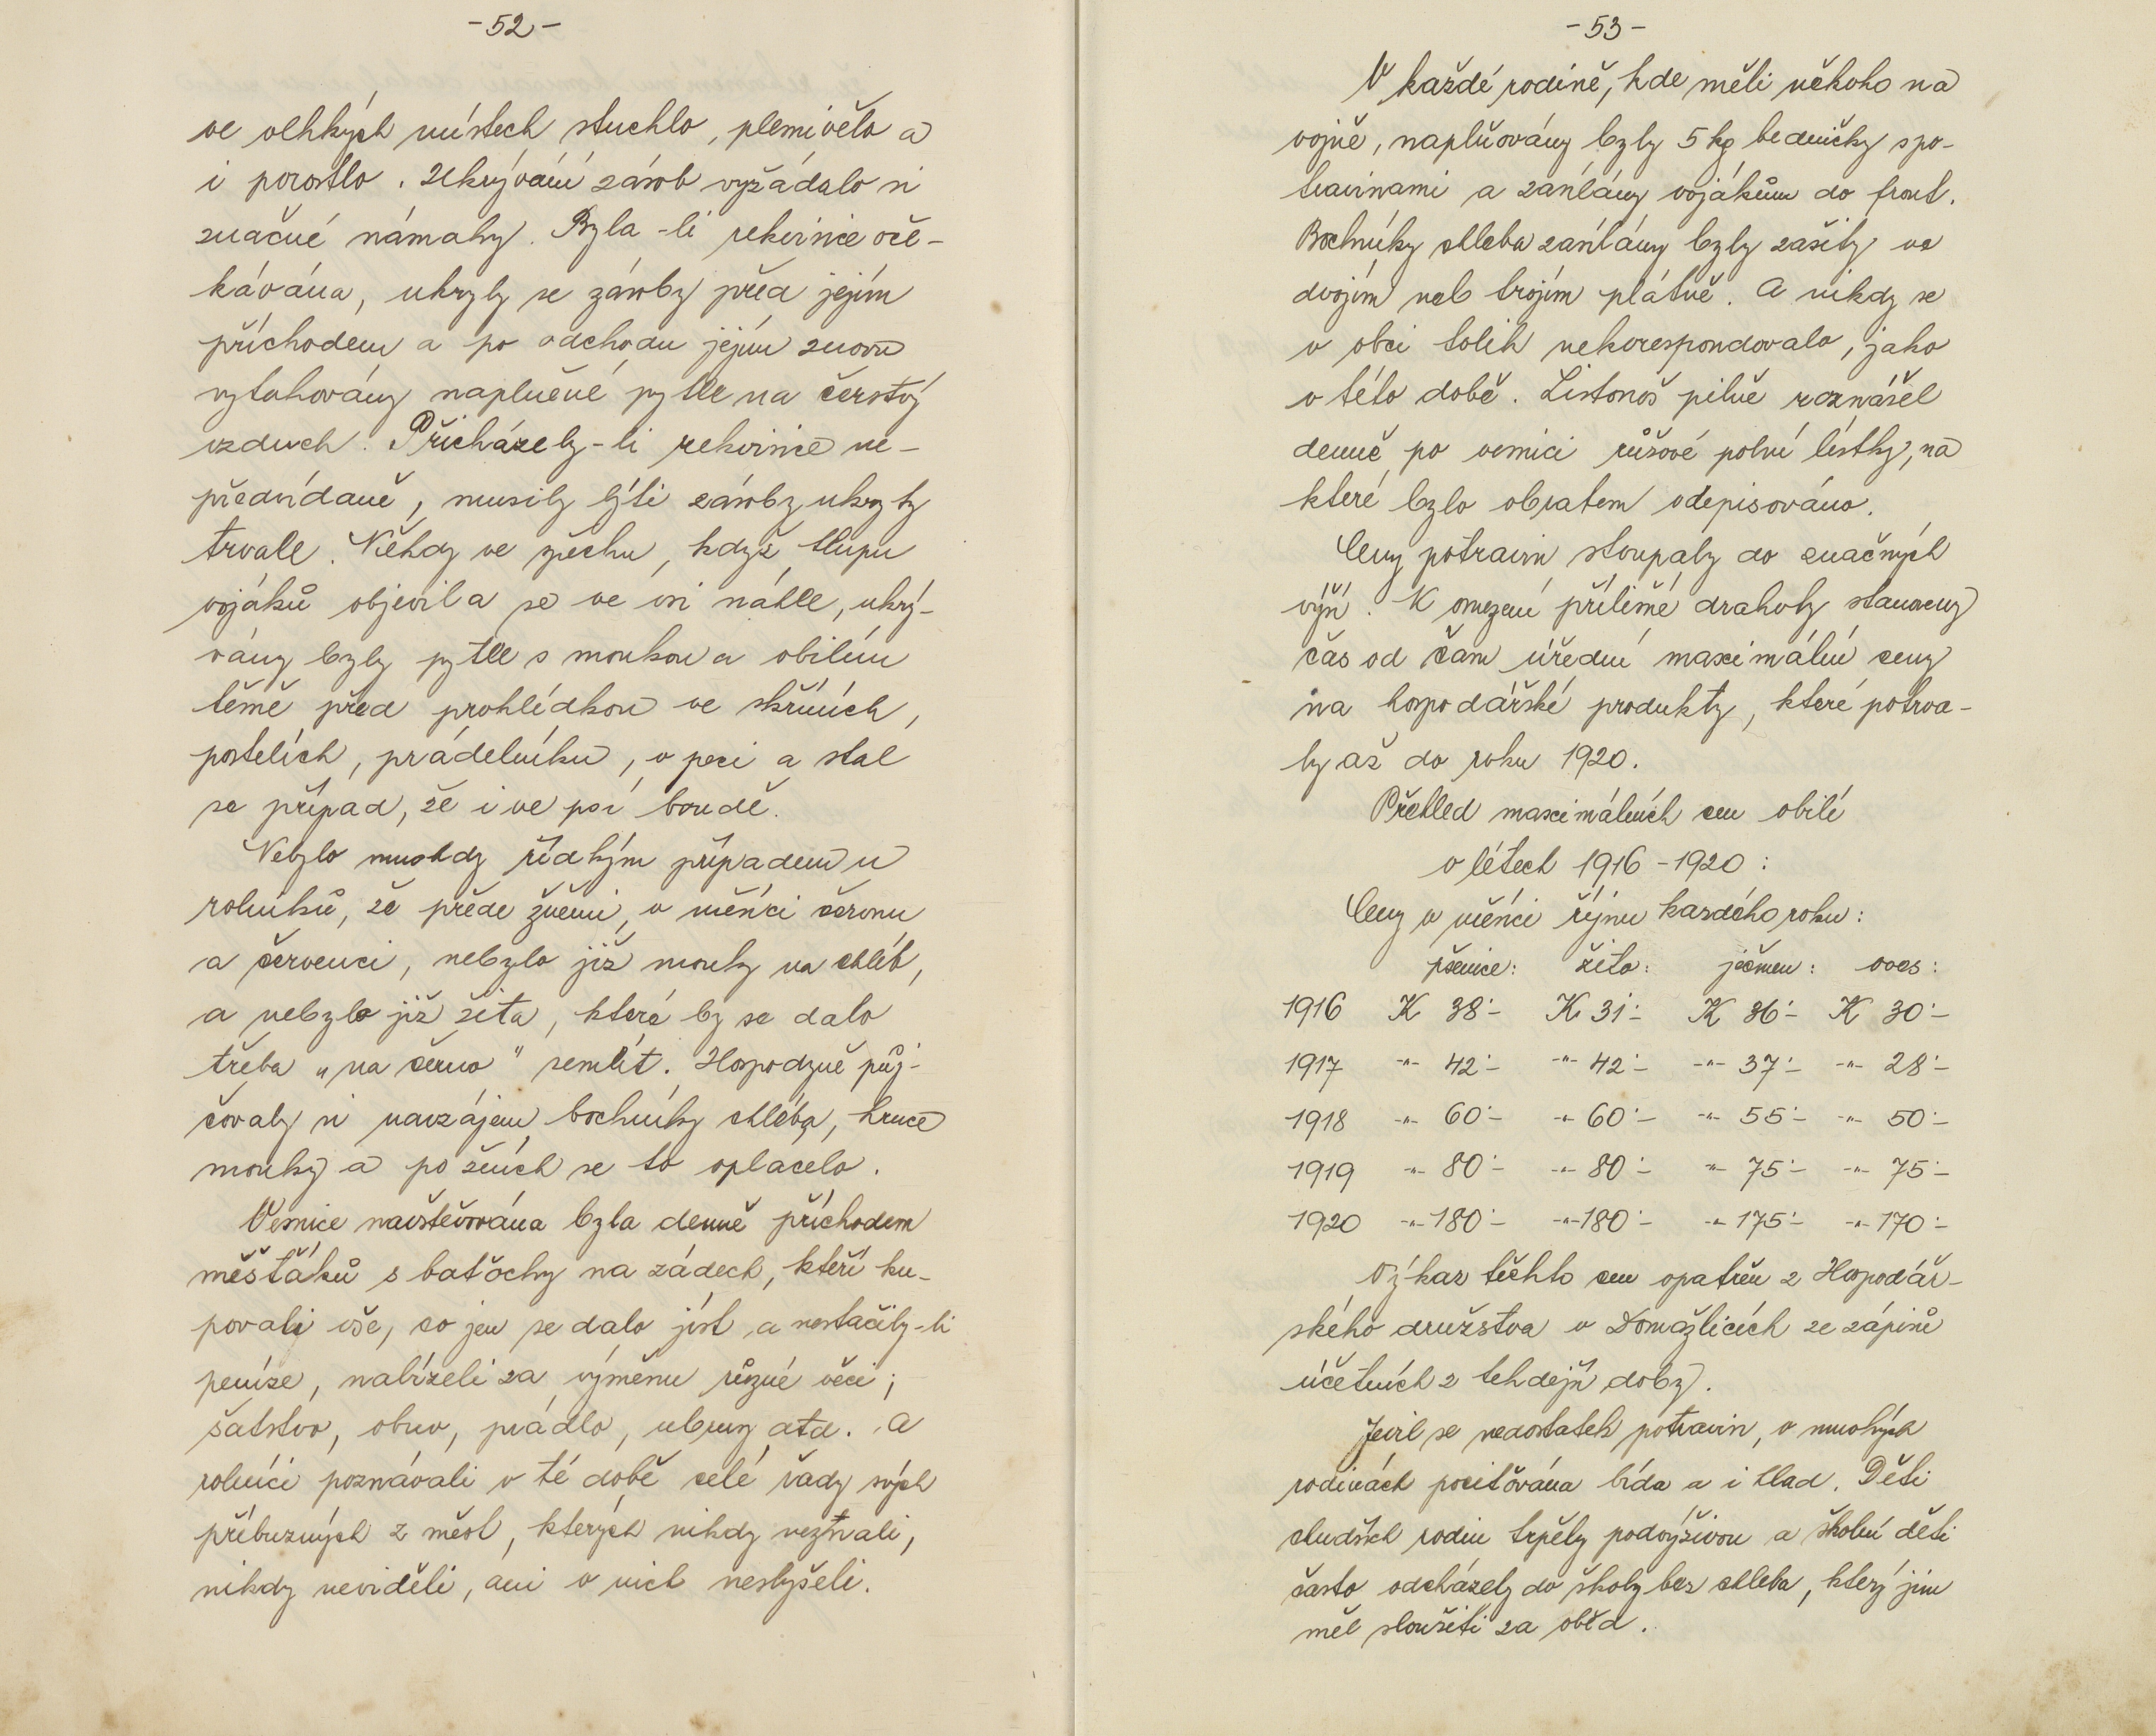 -52-
ve vlhkých místech stuchlo, plesnivělo a
i porostlo. Ukrývání zásob vyžádalo si
značné námahy. Byla-li rekvisice oče-
kávána, ukryly se zásoby před jejím
příchodem a po odchodu jejím znovu
vytahovány naplněné pytle na čerstvý
vzduch. Přicházely-li rekvisice ne-
předvídaně, musily býti zásoby ukryty
trvale. Někdy ve spěchu, když tlupa
vojáků objevila se ve vsi náhle, ukrý-
vány byly pytle s moukou a obilím
těmě před prohlídkou ve skříních,
postelích, prádelníku, v peci a stal
se případ, že i ve psí boudě.
Nebylo mnohdy řídkým případem u
rolníků, že přede žněmi, v měsíci červnu
a červenci, nebylo již mouky na chléb,
a nebylo již žita, které by se dalo
třeba „na černo" semlít. Hospodyně půj-
čovaly si navzájem bochníky chleba, hrnce
mouky a po žních se to oplacelo.
Vesnice navštěvována byla denně příchodem
měšťáků s baťochy na zádech, kteří ku-
povali vše, co jen se dalo jíst a nestačily-li
peníze, nabízeli za výměnu různé věci;
šatstvo, obuv, prádlo, ubrusy atd. A
rolníci poznávali v té době celé řady svých
příbuzných z měst, kterých nikdy neznali,
nikdy neviděli, ani o nich neslyšeli.
-53-
V každé rodině, kde měli někoho na
vojně, naplňovány byly 5 kg bedničky s po-
travinami a zasílány vojákům do front.
Bochníky chleba zasílány byly zašity ve
dvojím neb trojím plátně. A nikdy se
v obci tolik nekorespondovalo, jako
v této době. Listonoš pilně roznášel
denně po vesnici růžové polní lístky, na
které bylo obratem odepisováno.
Ceny potravin stoupaly do značných
výší. K omezení přílišné drahoty stanoveny
čas od času úřední maximální ceny
na hospodářské produkty, které potrva-
ly až do roku 1920.
Přehled maximálních cen obilí
v létech 1916-1920:
Ceny v měsíci říjnu každého roku:
pšenice: žito: ječmen: oves:
1916 K 38·- K 31·- K 36·- K 30·-
1917 -"- 42·- -"- 42·- -"- 37·- -"- 28·-
1918 -"- 60·- -"- 60·- -"- 55·- -"- 50·-
1919 -"- 80·- -"- 80·- -"- 75·- -"- 75·-
1920 -"- 180·- -"- 180·- -"- 175·- -"- 170·-
Výkaz těchto cen opatřen z Hospodář-
ského družstva v Domažlicích ze zápisů
účetních z tehdejší doby.
Jevil se nedostatek potravin, v mnohých
rodinách pociťována bída a i hlad. Děti
chudších rodin trpěly podvýživou a školní děti
často odcházely do školy bez chleba, který jim
měl sloužiti za oběd.